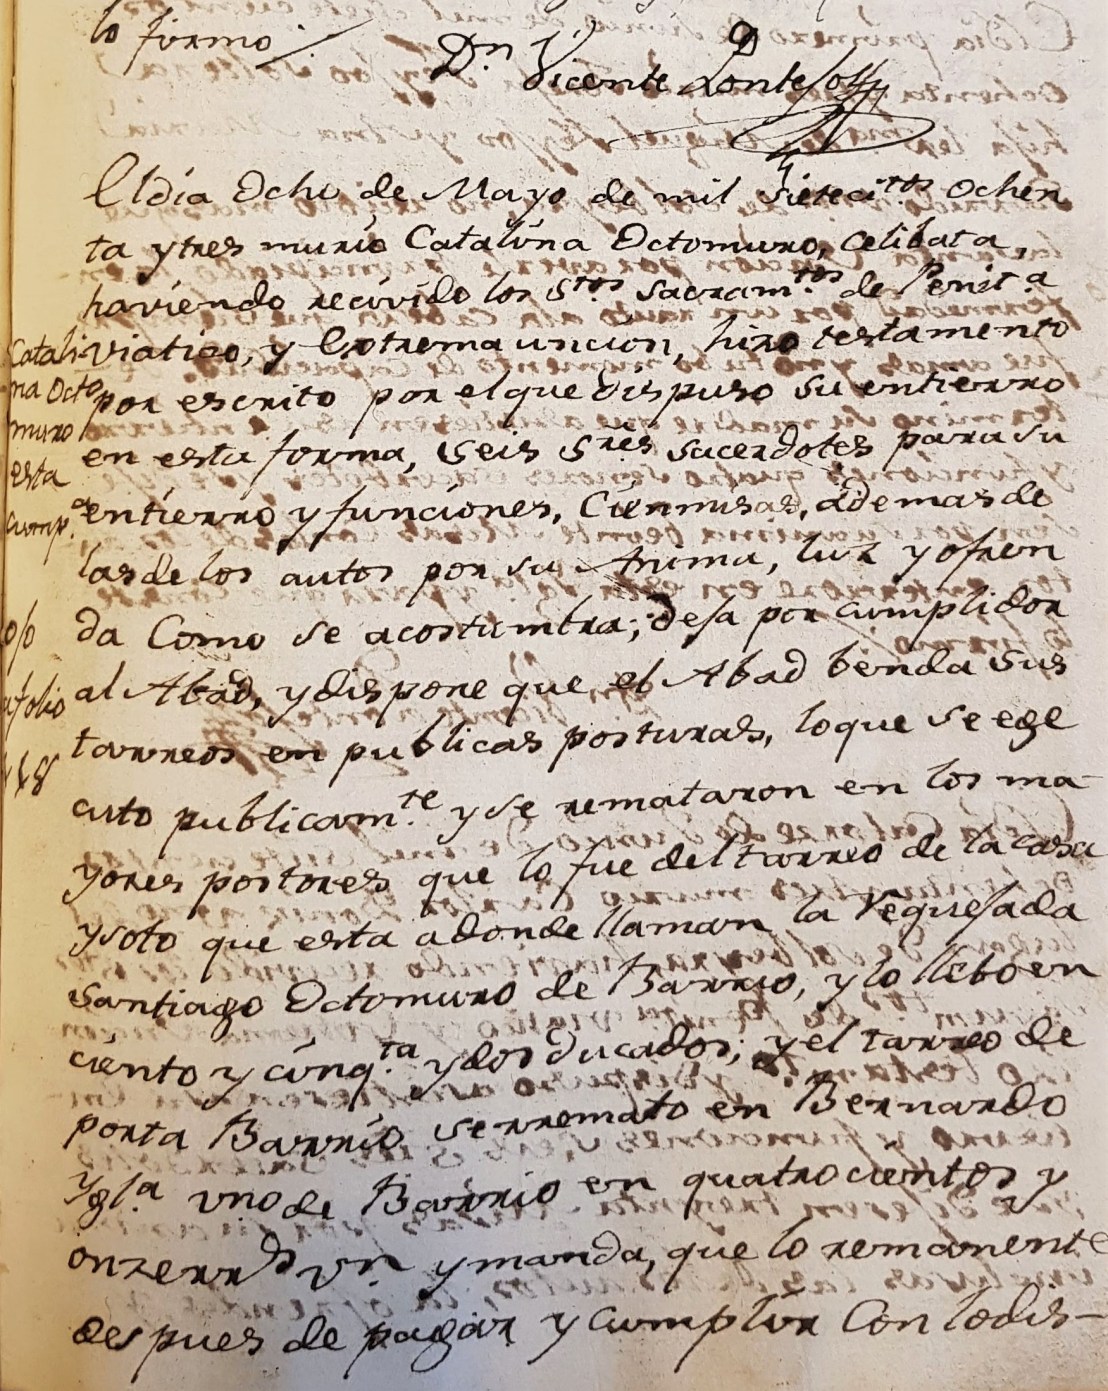 lo firmo
Dn Vicente
El dia Ocho de Mayo de mil Sieteci.tos Ochen
ta y tres murió Catalina Octomuro, Celibata,
haviendo recivido los S.tos Sacram.tos de Penit.a
viatico, y Extrema uncion, hizo testamento
por escrito por el que dispuso su entierro
en esta forma, Seis S.res Sacerdotes para su
entierro y funciones, Cien misas, ademas de
las de los autos por su Anima, luz y ofren
da Como se acostumbra; deja por cumplidor
al Abad, y dispone que el Abad benda Sus
tarreos en publicas posturas, lo que se ege
cuto publicam.te y se remataron en los ma-
yores postores que lo fue del tarreo de la casa
y soto que esta a donde llaman la Veguisada
Santiago Octomuro de Barrio, y lo llebo en
ciento y cinq.ta y dos Ducados; y el tarreo de
porta Barrio se rremato en Bernardo
Ygl.a vno de Barrio en quatrocientos y
onze rr.s v.n y manda, que lo remanente
despues de pagar y Cumplir Con lo dis-
Catali-
na Octo
muro
esta
cump.a
folio